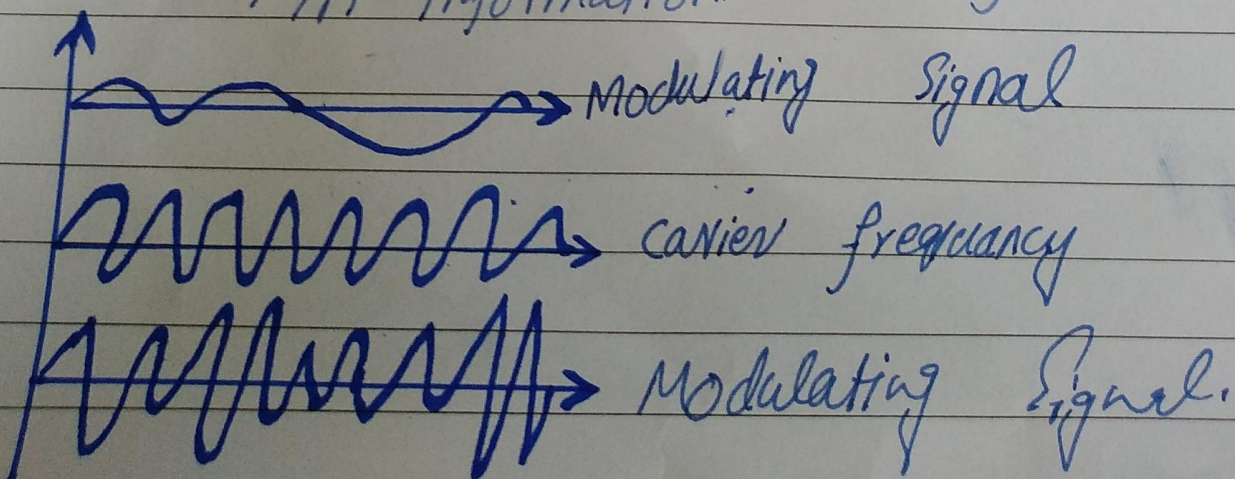 information
Modulating Signal
carrier frequancy
Modulating Signal.